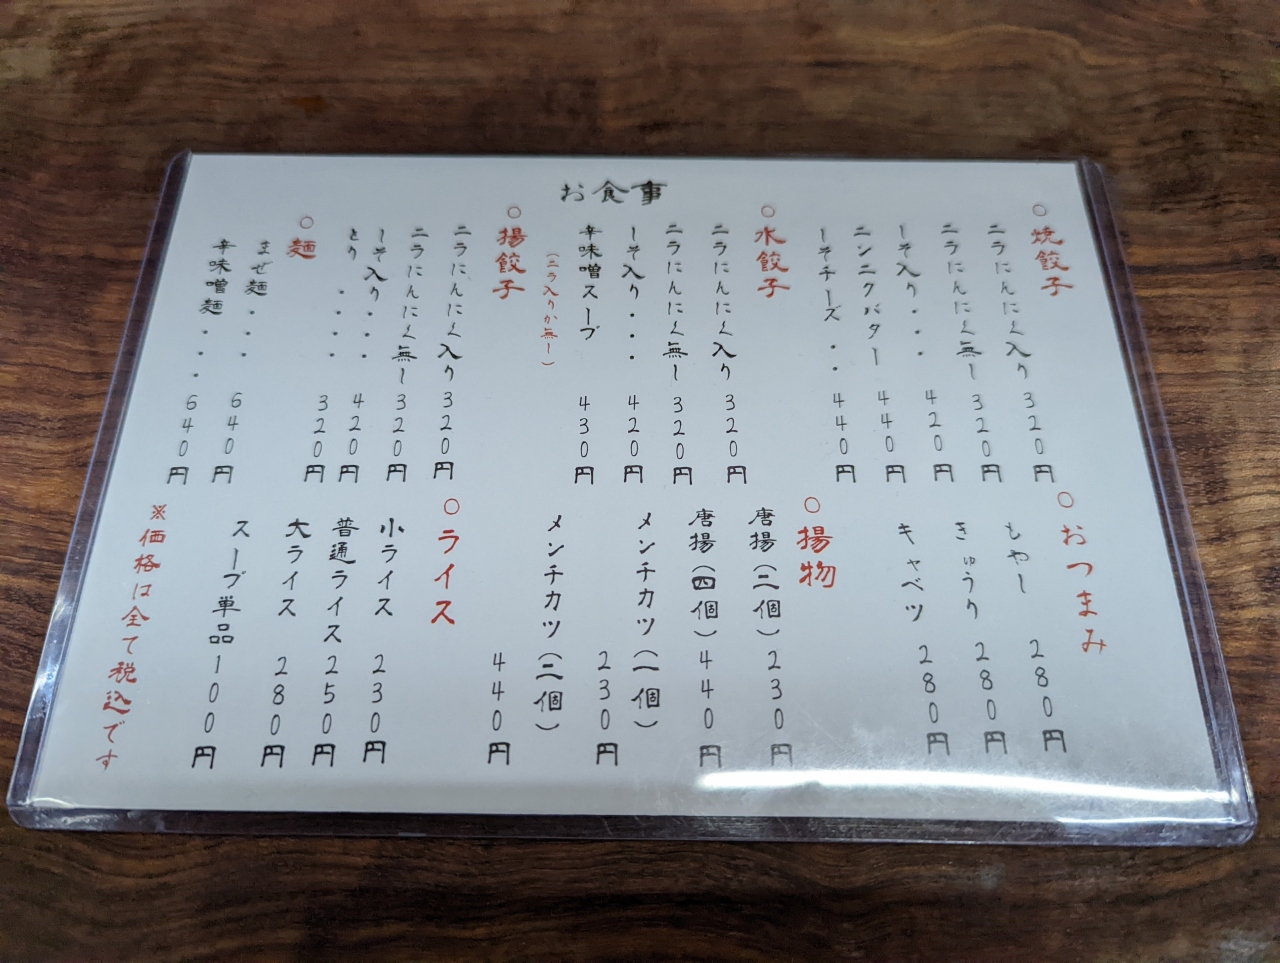 お食事
○焼餃子
ニラにんにく入り 320円
ニラにんにく無し 320円
しそ入り・・・ 420円
ニンニクバター 440円
しそチーズ・・ 440円
○水餃子
ニラにんにく入り 320円
ニラにんにく無し 320円
しそ入り・・・ 420円
辛味噌スープ 430円
(ニラ入りか無し)
○揚餃子
ニラにんにく入り 320円
ニラにんにく無し 320円
しそ入り・・・ 420円
とり・・・・ 320円
○麺
まぜ麺・・・ 640円
辛味噌麺・・・ 640円
○おつまみ
もやし 280円
きゅうり 280円
キャベツ 280円
○揚物
唐揚(二個) 230円
唐揚(四個) 440円
メンチカツ(一個) 230円
メンチカツ(二個) 440円
○ライス
小ライス 230円
普通ライス 250円
大ライス 280円
スープ単品 100円
※価格は全て税込です